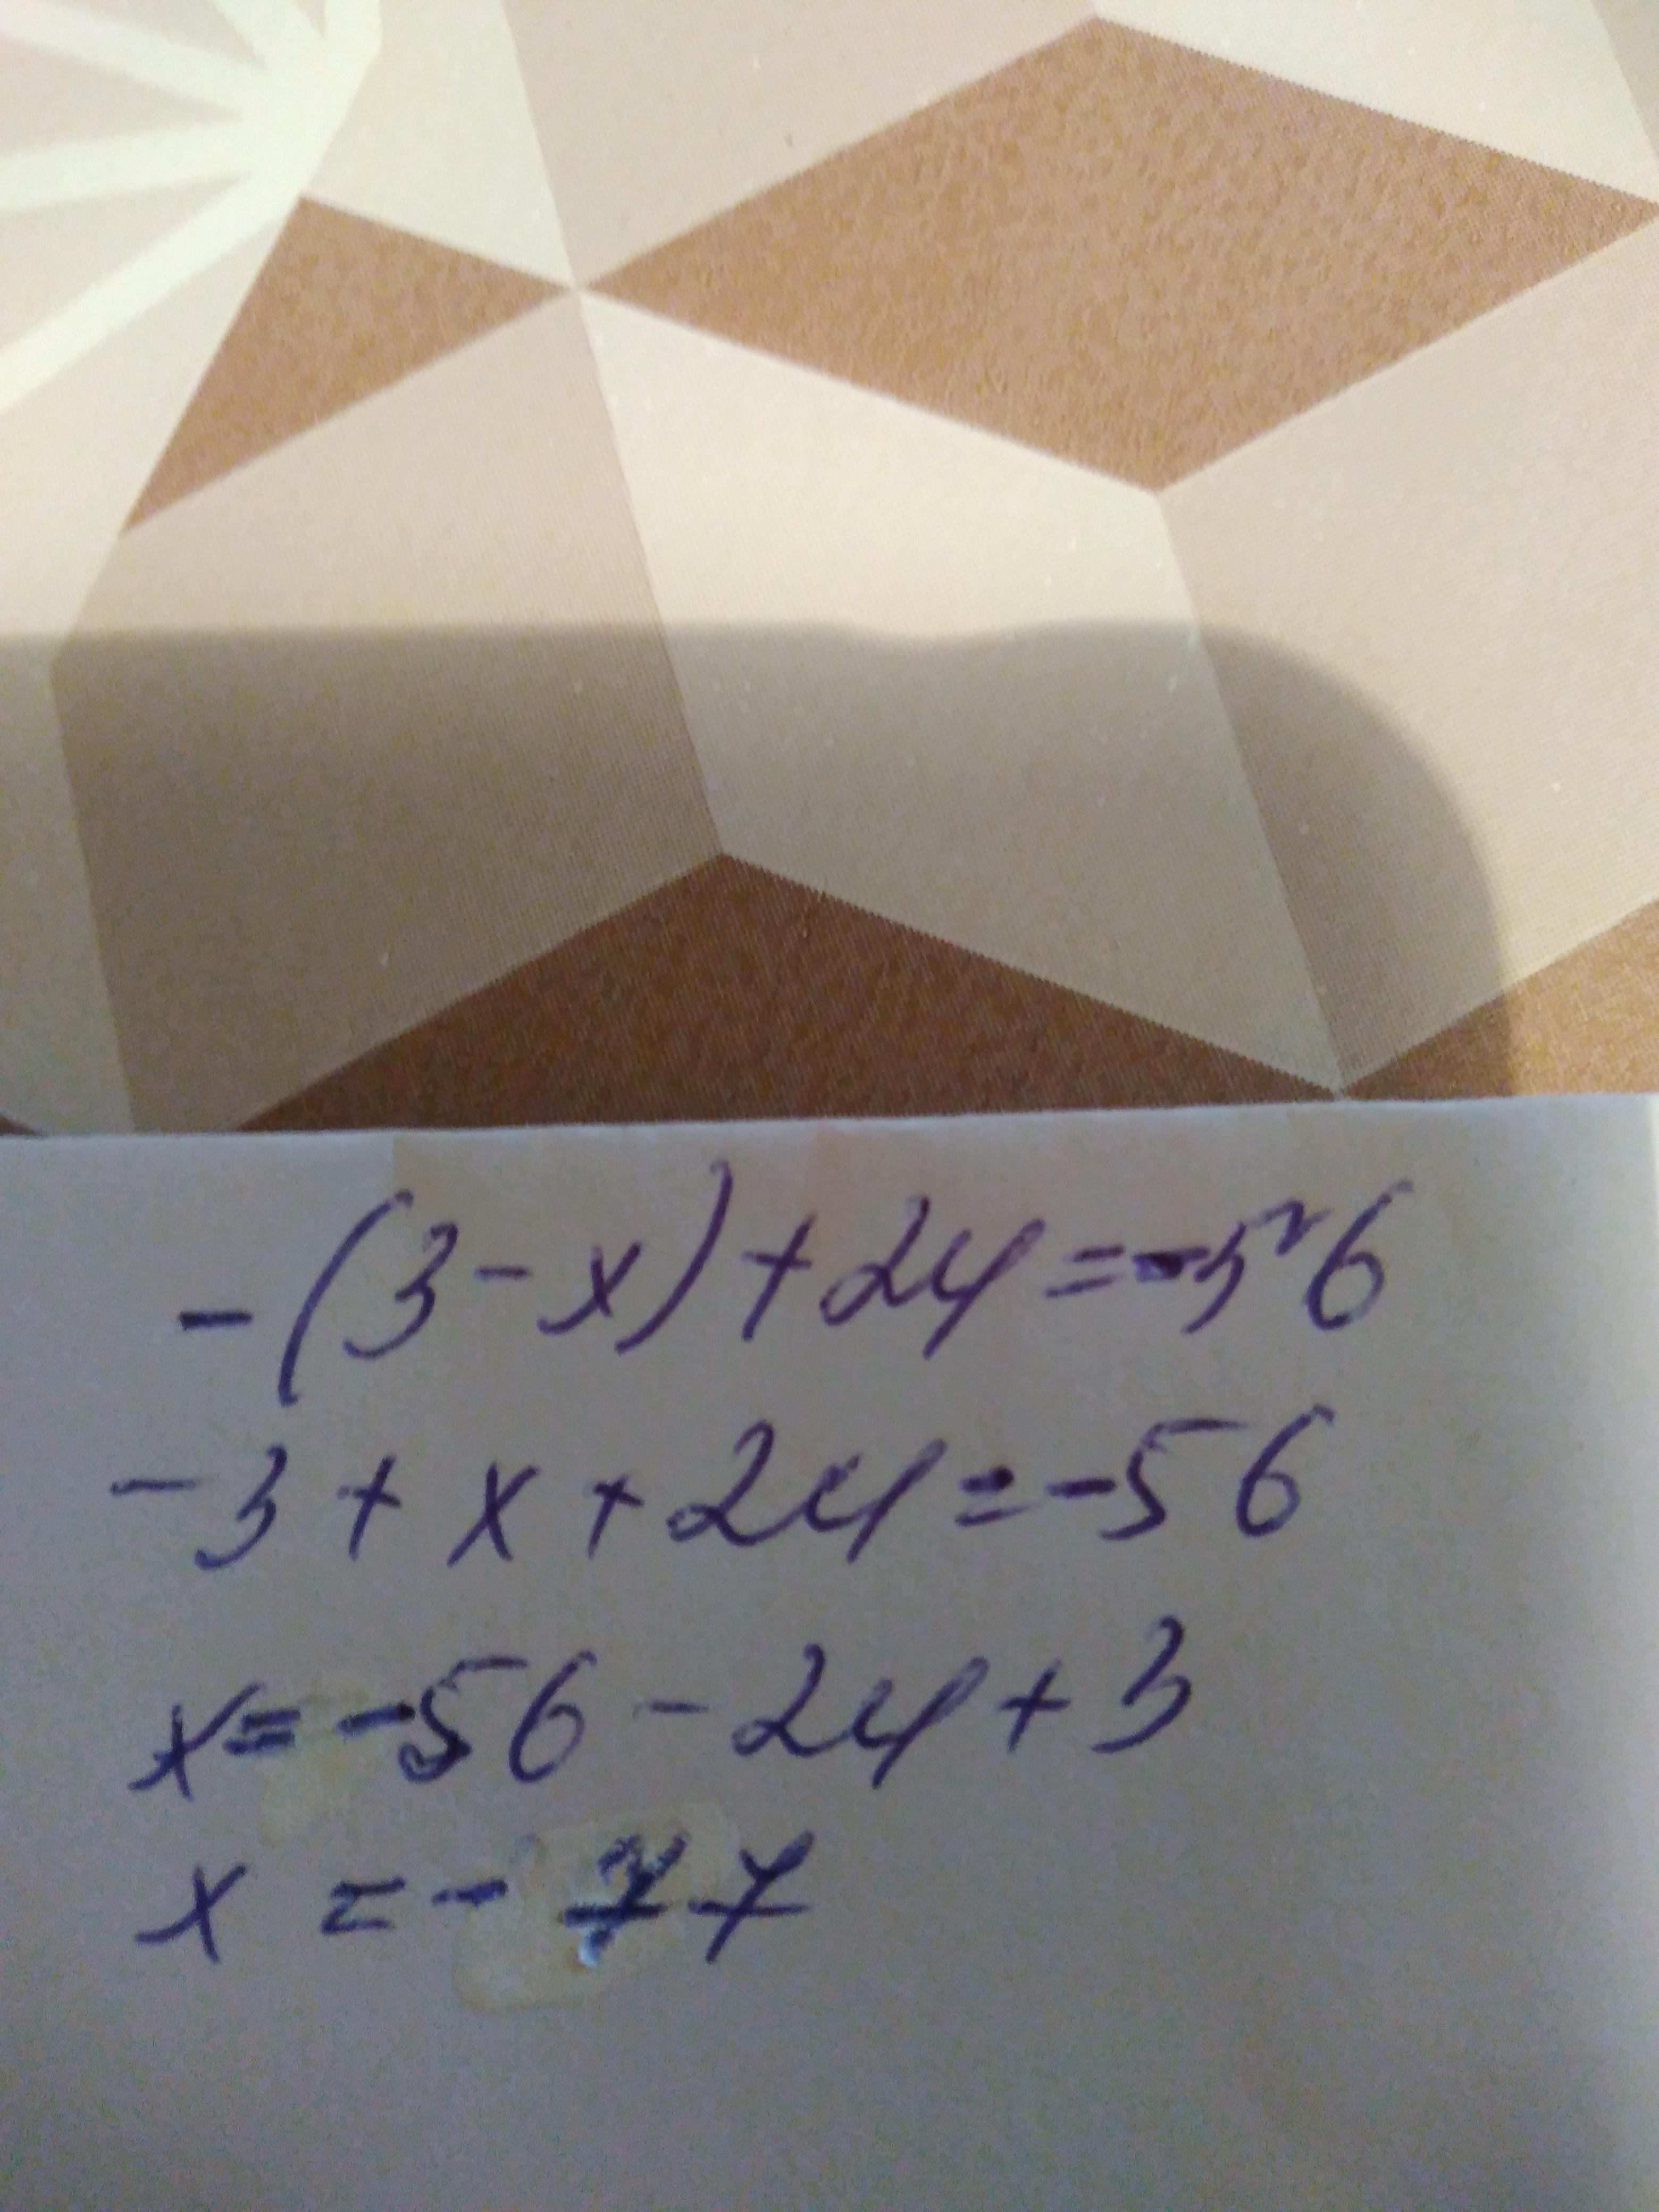 -(3-x)+24=-56
-3+x+24=-56
x=-56-24+3
x=-77